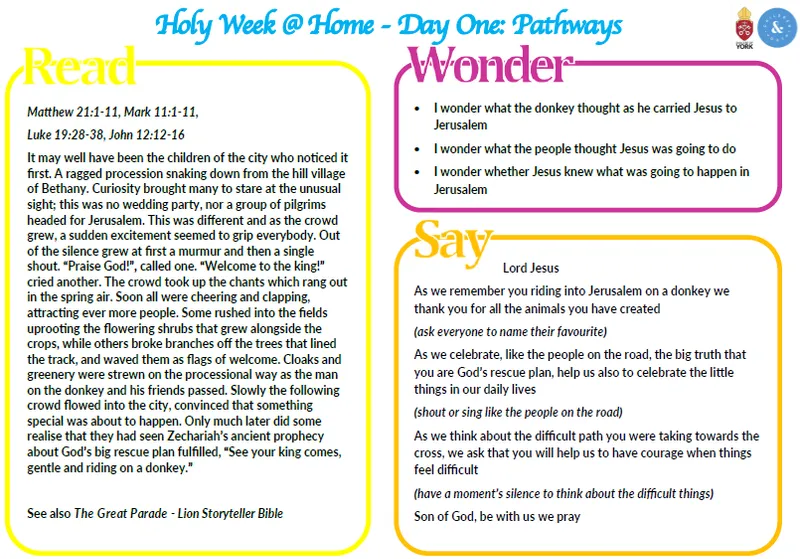 Holy Week @ Home - Day One: Pathways
YORK
Read
Matthew 21:1-11, Mark 11:1-11,
Luke 19:28-38, John 12:12-16
It may well have been the children of the city who noticed it
first. A ragged procession snaking down from the hill village
of Bethany. Curiosity brought many to stare at the unusual
sight; this was no wedding party, nor a group of pilgrims
headed for Jerusalem. This was different and as the crowd
grew, a sudden excitement seemed to grip everybody. Out
of the silence grew at first a murmur and then a single
shout. “Praise God!”, called one. “Welcome to the king!”
cried another. The crowd took up the chants which rang out
in the spring air. Soon all were cheering and clapping,
attracting ever more people. Some rushed into the fields
uprooting the flowering shrubs that grew alongside the
crops, while others broke branches off the trees that lined
the track, and waved them as flags of welcome. Cloaks and
greenery were strewn on the processional way as the man
on the donkey and his friends passed. Slowly the following
crowd flowed into the city, convinced that something
special was about to happen. Only much later did some
realise that they had seen Zechariah’s ancient prophecy
about God’s big rescue plan fulfilled, “See your king comes,
gentle and riding on a donkey.”
See also The Great Parade - Lion Storyteller Bible
Wonder
• I wonder what the donkey thought as he carried Jesus to
Jerusalem
• I wonder what the people thought Jesus was going to do
• I wonder whether Jesus knew what was going to happen in
Jerusalem
Say
Lord Jesus
As we remember you riding into Jerusalem on a donkey we
thank you for all the animals you have created
(ask everyone to name their favourite)
As we celebrate, like the people on the road, the big truth that
you are God’s rescue plan, help us also to celebrate the little
things in our daily lives
(shout or sing like the people on the road)
As we think about the difficult path you were taking towards the
cross, we ask that you will help us to have courage when things
feel difficult
(have a moment’s silence to think about the difficult things)
Son of God, be with us we pray